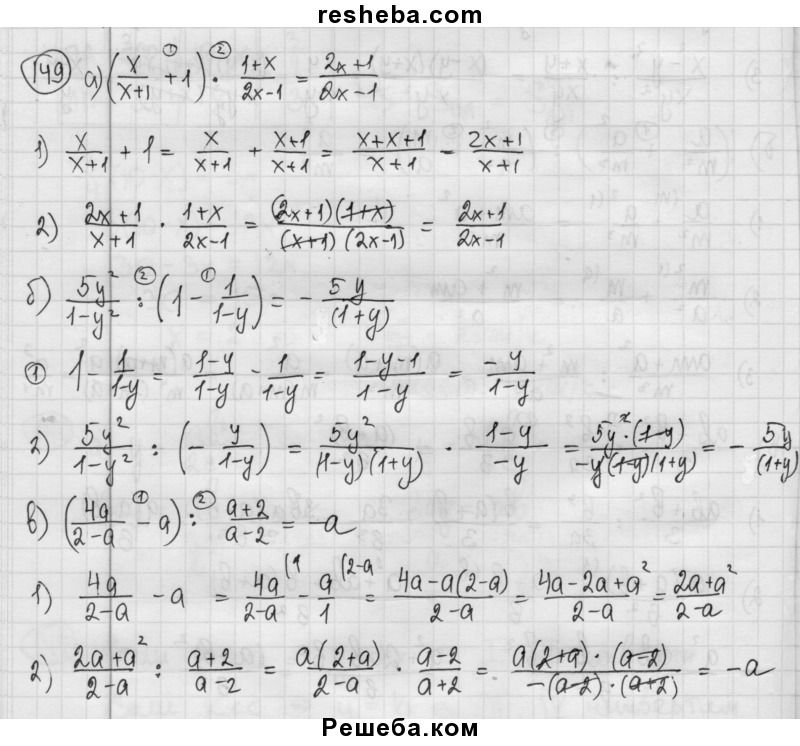 resheba.com
149 а) (x/(x+1) + 1)^① · ^② (1+x)/(2x-1) = (2x+1)/(2x-1)
1) x/(x+1) + 1 = x/(x+1) + (x+1)/(x+1) = (x+x+1)/(x+1) - (2x+1)/(x+1)
2) (2x+1)/(x+1) · (1+x)/(2x-1) = (2x+1)(1+x)/(x+1)(2x-1) = (2x+1)/(2x-1)
б) 5y²/(1-y²) :^② (1 -^① 1/(1-y)) = - 5y/(1+y)
① 1 - 1/(1-y) = (1-y)/(1-y) - 1/(1-y) = (1-y-1)/(1-y) = -y/(1-y)
2) 5y²/(1-y²) : (- y/(1-y)) = 5y²/(1-y)(1+y) · (1-y)/-y = 5y²·(1-y)/-y(1-y)(1+y) = - 5y/(1+y)
в) (4a/(2-a) -^① a) :^② (a+2)/(a-2) = -a
1) 4a/(2-a) - a = 4a/(2-a)^(1 - a/1^(2-a = (4a-a(2-a))/(2-a) = (4a-2a+a²)/(2-a) = (2a+a²)/(2-a)
2) (2a+a²)/(2-a) : (a+2)/(a-2) = a(2+a)/(2-a) · (a-2)/(a+2) = a(2+a)·(a-2)/-(a-2)·(a+2) = -a
Решеба.ком